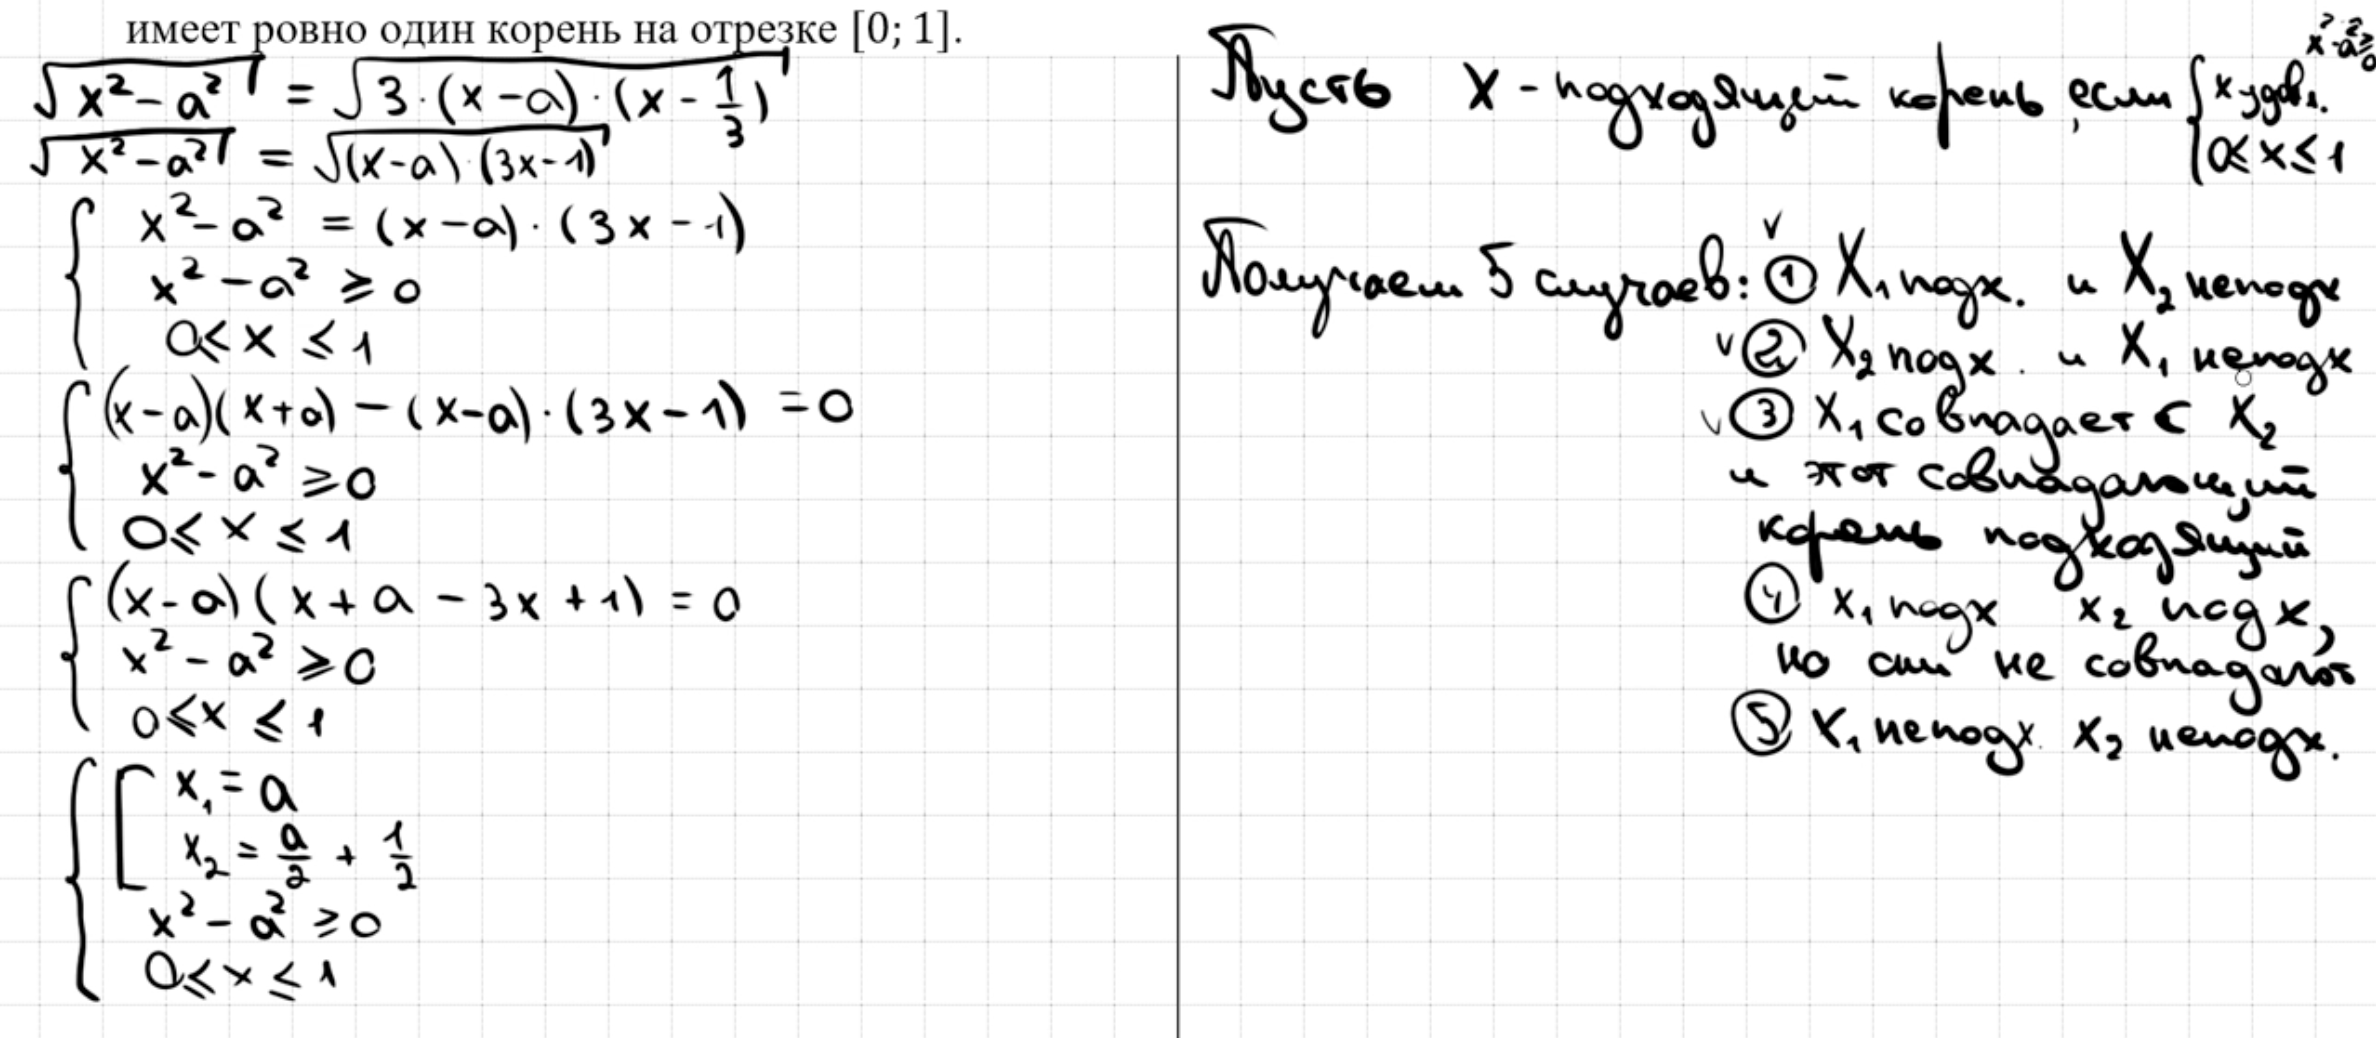 имеет ровно один корень на отрезке [0; 1].
√(x² − a²) = √(3·(x − a)·(x − 1/3))
√(x² − a²) = √((x − a)·(3x − 1))
{ x² − a² = (x − a)·(3x − 1)
x² − a² ≥ 0
0 ≤ x ≤ 1
{ (x − a)(x + a) − (x − a)·(3x − 1) = 0
x² − a² ≥ 0
0 ≤ x ≤ 1
{ (x − a)(x + a − 3x + 1) = 0
x² − a² ≥ 0
0 ≤ x ≤ 1
{ [ x₁ = a
x₂ = a/2 + 1/2
x² − a² ≥ 0
0 ≤ x ≤ 1
Пусть X - подходящий корень, если { x удовл. x² − a² ≥ 0
0 ≤ x ≤ 1
Получаем 5 случаев: ① X₁ подх. и X₂ неподх
② X₂ подх. и X₁ неподх
③ X₁ совпадает с X₂
и этот совпадающий
корень подходящий
④ X₁ подх X₂ подх,
но они не совпадают
⑤ X₁ неподх. X₂ неподх.